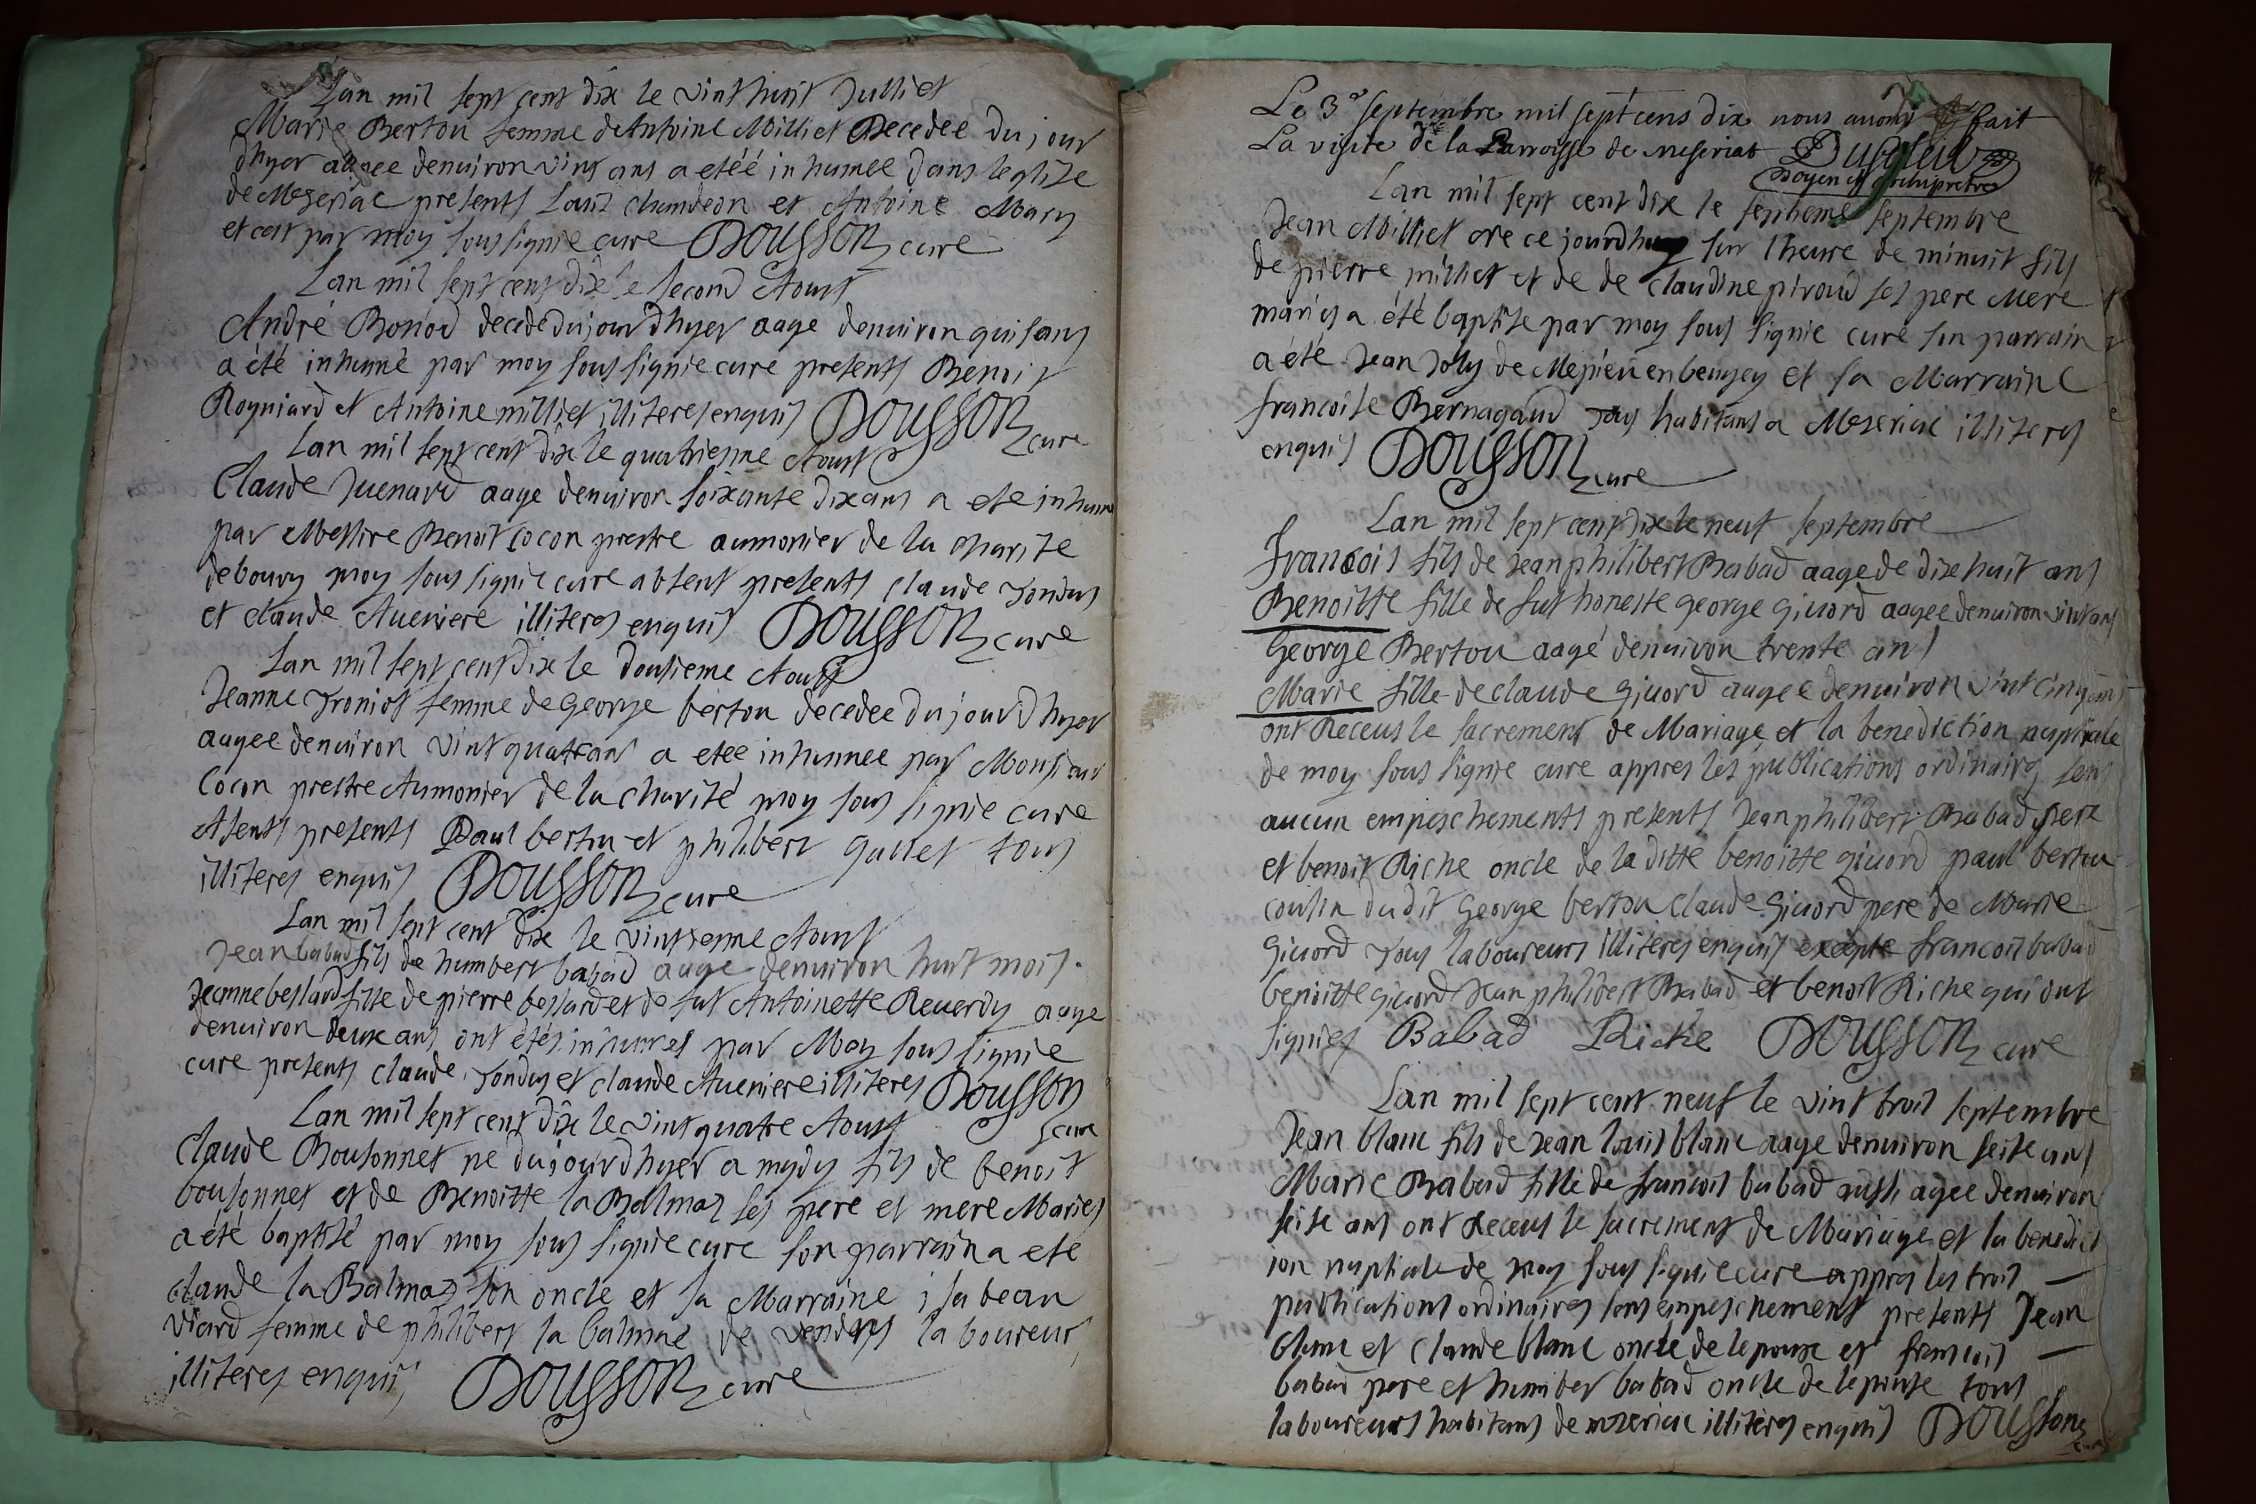 Lan mil sept cent dix le vint huit Julliet
Marie Bertou femme de Antoine Milliet Decedee du jour
dhyer aagee denuiron vint ans a etéé inhumee dans leglise
de Mezeriac presents Louis chandeon et Antoine Mary
et cest par moy sous signie cure DOUSSON cure
Lan mil sept cent dix le second Aoust
André Boniod decede du jour dhyer aage denuiron quis ans
a été inhumé par moy sous signie cure presents Benoit
Royniard et Antoine milliet illiteres enquis DOUSSON cure
Lan mil sept cent dix le quatrieme Aoust
Claude Juenard aage denuiron soixante dix ans a ete inhume
par Messire Benoit Cocon prestre aumonier de la charite
de bourg moy sous signie cure absent presents claude Tondus
et claude Aueniere illiteres enquis DOUSSON cure
Lan mil sept cent dix le dousieme Aoust
Jeanne Troniot femme de George bertou decedee du jour dhyer
aagee denuiron vint quatrans a etee inhumee par Monsieur
Cocon prestre Aumonier de la charité moy sous signie cure
Absents presents Paul bertou et philibert gallet tous
illiteres enquis DOUSSON cure
Lan mil sept cent dix le vintsenne Aoust
Jean babad fils de humbert babad aage denuiron huit mois.
Jeanne bellard fille de pierre bellard et de fut Antoinette Reuerdy aage
denuiron deux ans ont étés inhumes par Moy sous signie
cure presents claude Tondus et claude Aueniere illiteres DOUSSON
cure
Lan mil sept cent dix le vint quatre Aoust
Claude Bousonnet ne du jour dhyer a mydy fils de benoit
bousonnet et de Benoitte la Balmas ses pere et mere Maries
a été baptisé par moy sous signie cure son parrain a ete
claude la Balmas son oncle et sa Marraine isabeau
viard femme de philibert la balmas de vendeys laboureur
illiteres enquis DOUSSON cure
Le 3e septembre mil sept cens dix nous auons fait
La visite de la Parroisse de meseriat
Doyen et archipretre
Lan mil sept cent dix le septieme septembre
Jean Milliet ne ce jourdhuy sur lheure de minuit fils
de pierre milliet et de de claudine piroud ses pere Mere
maries a été baptise par moy sous signie curé son parrain
a été Jean Joly de Mepieu en beugey et sa Marraine
francoise Bernagaud Tous habitans a Mezeriac illiteres
enquis DOUSSON cure
Lan mil sept cent dix le neuf septembre
francois fils de Jean philibert Babad aage de dix huit ans
Benoitte fille de fut honeste george giuord aagee denuiron vint ans
George Bertou aagé denuiron trente ans
Marie fille de claude giuord aagee denuiron vint cinq ans
ont Receus le sacrement de Mariage et la benediction nuptiale
de moy sous signie cure appres les publications ordinaires sans
aucun empeschements presents Jean philibert Babad pere
et benoit Riche oncle de la ditte benoitte giuord paul bertou
cousin dudit George bertou Claude giuord pere de Marie
giuord Tous laboureurs illiteres enquis excepte francois babad
benoitte giuord Jean philibert Babad et benoit Riche qui ont
signies Babad Riche DOUSSON cure
Lan mil sept cent neuf le vint trois septembre
Jean blanc fils de Jean louis blanc aage denuiron seise ans
Marie Babad fille de francois babad aussi agee denuiron
seise ans ont Receus le sacrement de Mariage et la benedict
ion nuptiale de moy sous signie cure appres les trois
publications ordinaires sans empeschement presents Jean
blanc et Claude blanc oncle de lepoux et francois
babad pere et humber babad oncle de lepouse tous
laboureurs habitans de mezeriac illiteres enquis DOUSSON
cure